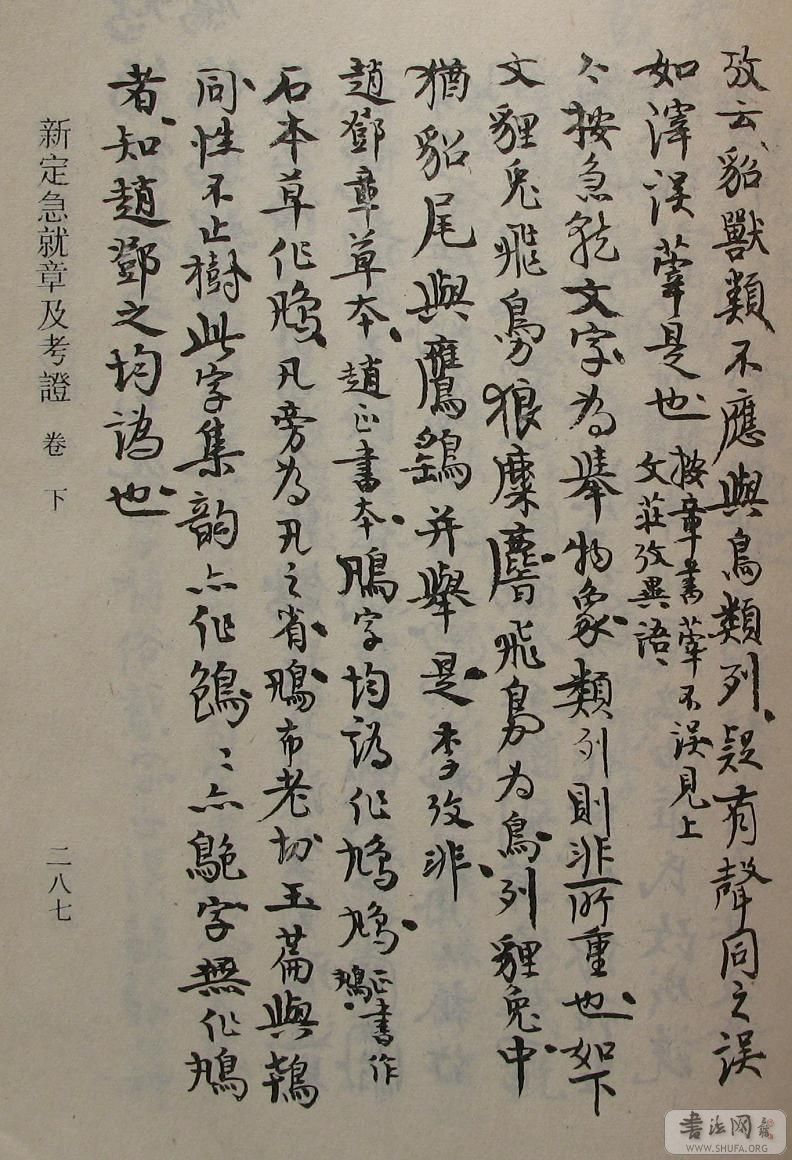 攷云、貂獸類不應與鳥類列、疑有聲同之誤
如澤誤蕇是也、
按章書蕇不誤見上
文莊攷異語、
今按急就文字、為舉物象、類列則非所重也、如下
文貍兔飛鳥狼麋麐飛鳥為鳥、列貍兔中、
猶貂尾與鷹鷂并舉是、李攷非、
趙鄧章草本、趙正書本、鴇字均譌作鳩鳩、
正書作
石本草作鴇、旁為之省、鴇布老切玉篇與鴇
同性不止樹此字集韵亦作鴇、亦字無作鳩
者、知趙鄧之均譌也、
新定急就章及考證 卷下
二八七
書法网
WWW.SHUFA.ORG